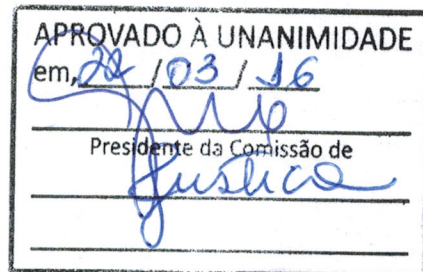 APROVADO À UNANIMIDADE
em, 22 / 03 / 16
Presidente da Comissão de
Justica